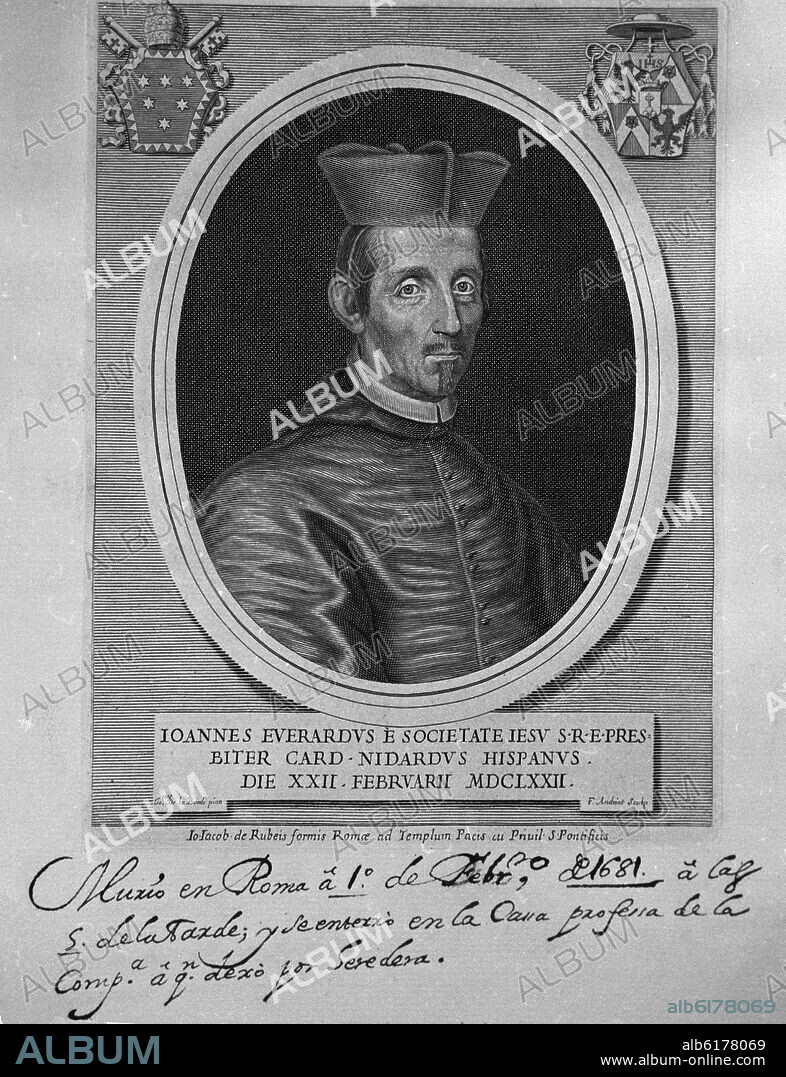 IHS
IOANNES EVERARDVS È SOCIETATE IESV S·R·E·PRES·
BITER CARD·NIDARDVS HISPANVS.
DIE XXII·FEBRVARII MDCLXXII.
pinx
F. Andriot Sculp
Io Iacob de Rubeis formis Romæ ad Templum Pacis cu Priuil S Pontificis
Murió en Roma â 1.º de Febr,º de 1681. â las
5. de la tarde; y se enterrò en la Casa professa de la
Comp.ª â q.n dexò por heredera.
alb6178069
ALBUM
alb6178069
www.album-online.com